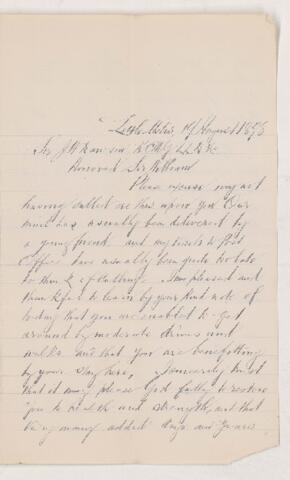 Little Metis, 19 August 1896
Sir J W Dawson K C M G LL D &c
Honored Sir William
Please excuse my not
having called in this upon you. Our
mail has usually been delivered by
a young friend and my visits to Post
Office have usually been quite too late
to think of calling. I am pleased and
thankful to learn by your kind note of
today that you are enabled to get
around by moderate drives and
walks and that you are benefitting
by your stay here, I sincerely trust
that it may please God fully to restore
you to health and strength, and that
by many added days and years